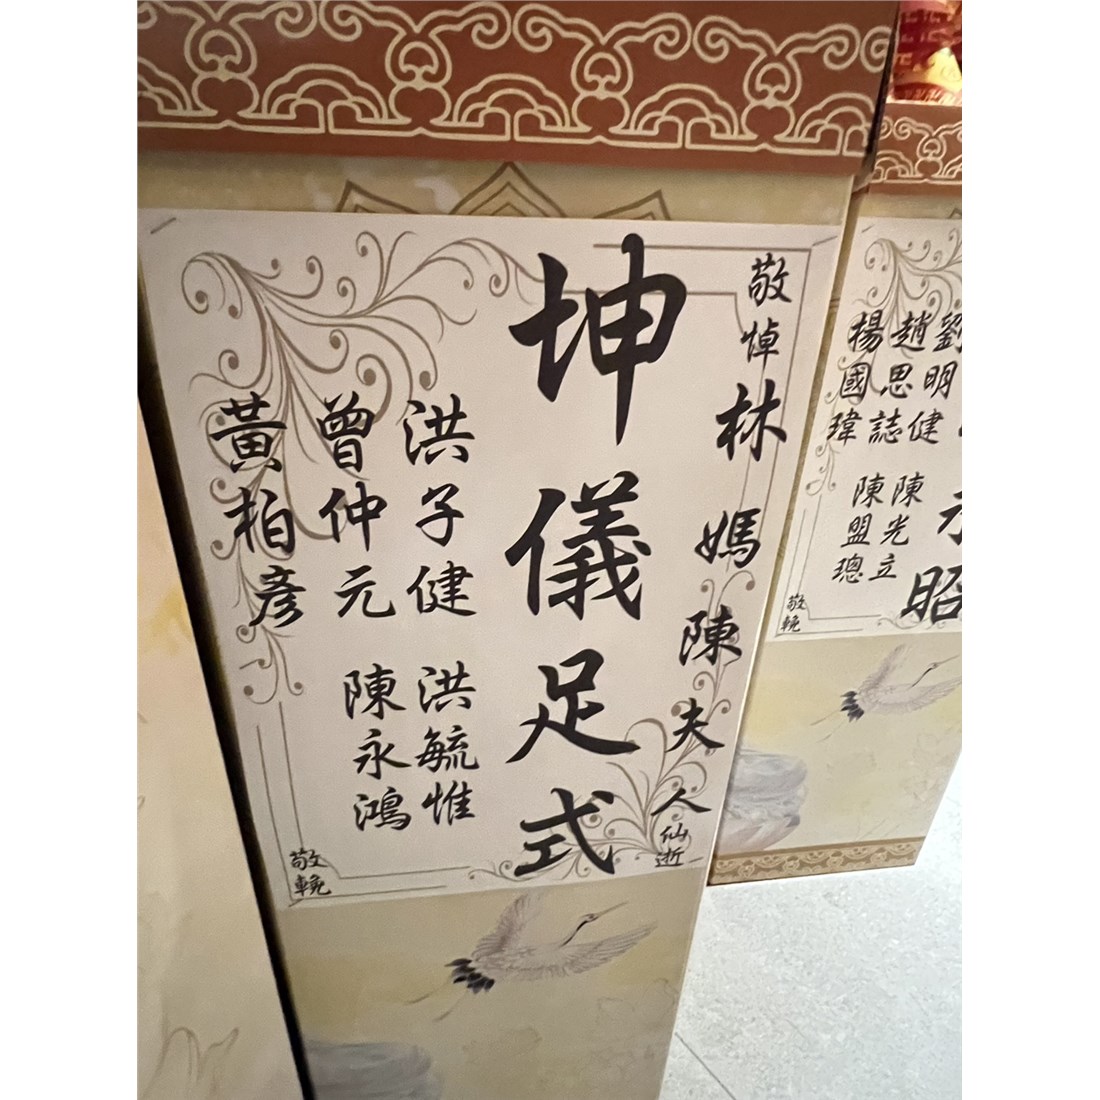 敬悼林媽陳夫人仙逝
坤儀足式
洪子健
洪毓惟
曾仲元
陳永鴻
黃柏彥
敬輓
昭
劉明健
趙思誌
楊國瑋
陳光立
陳盟璁
敬輓